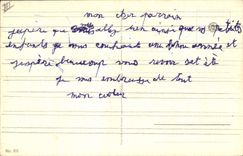 mon cher parrain
j'espère que allez bien ainsi que vos petits
enfants je vous souhaite une bonne année et
j'espère beaucoup vous revoir cet été
je vous embrasse de tout
mon cœur